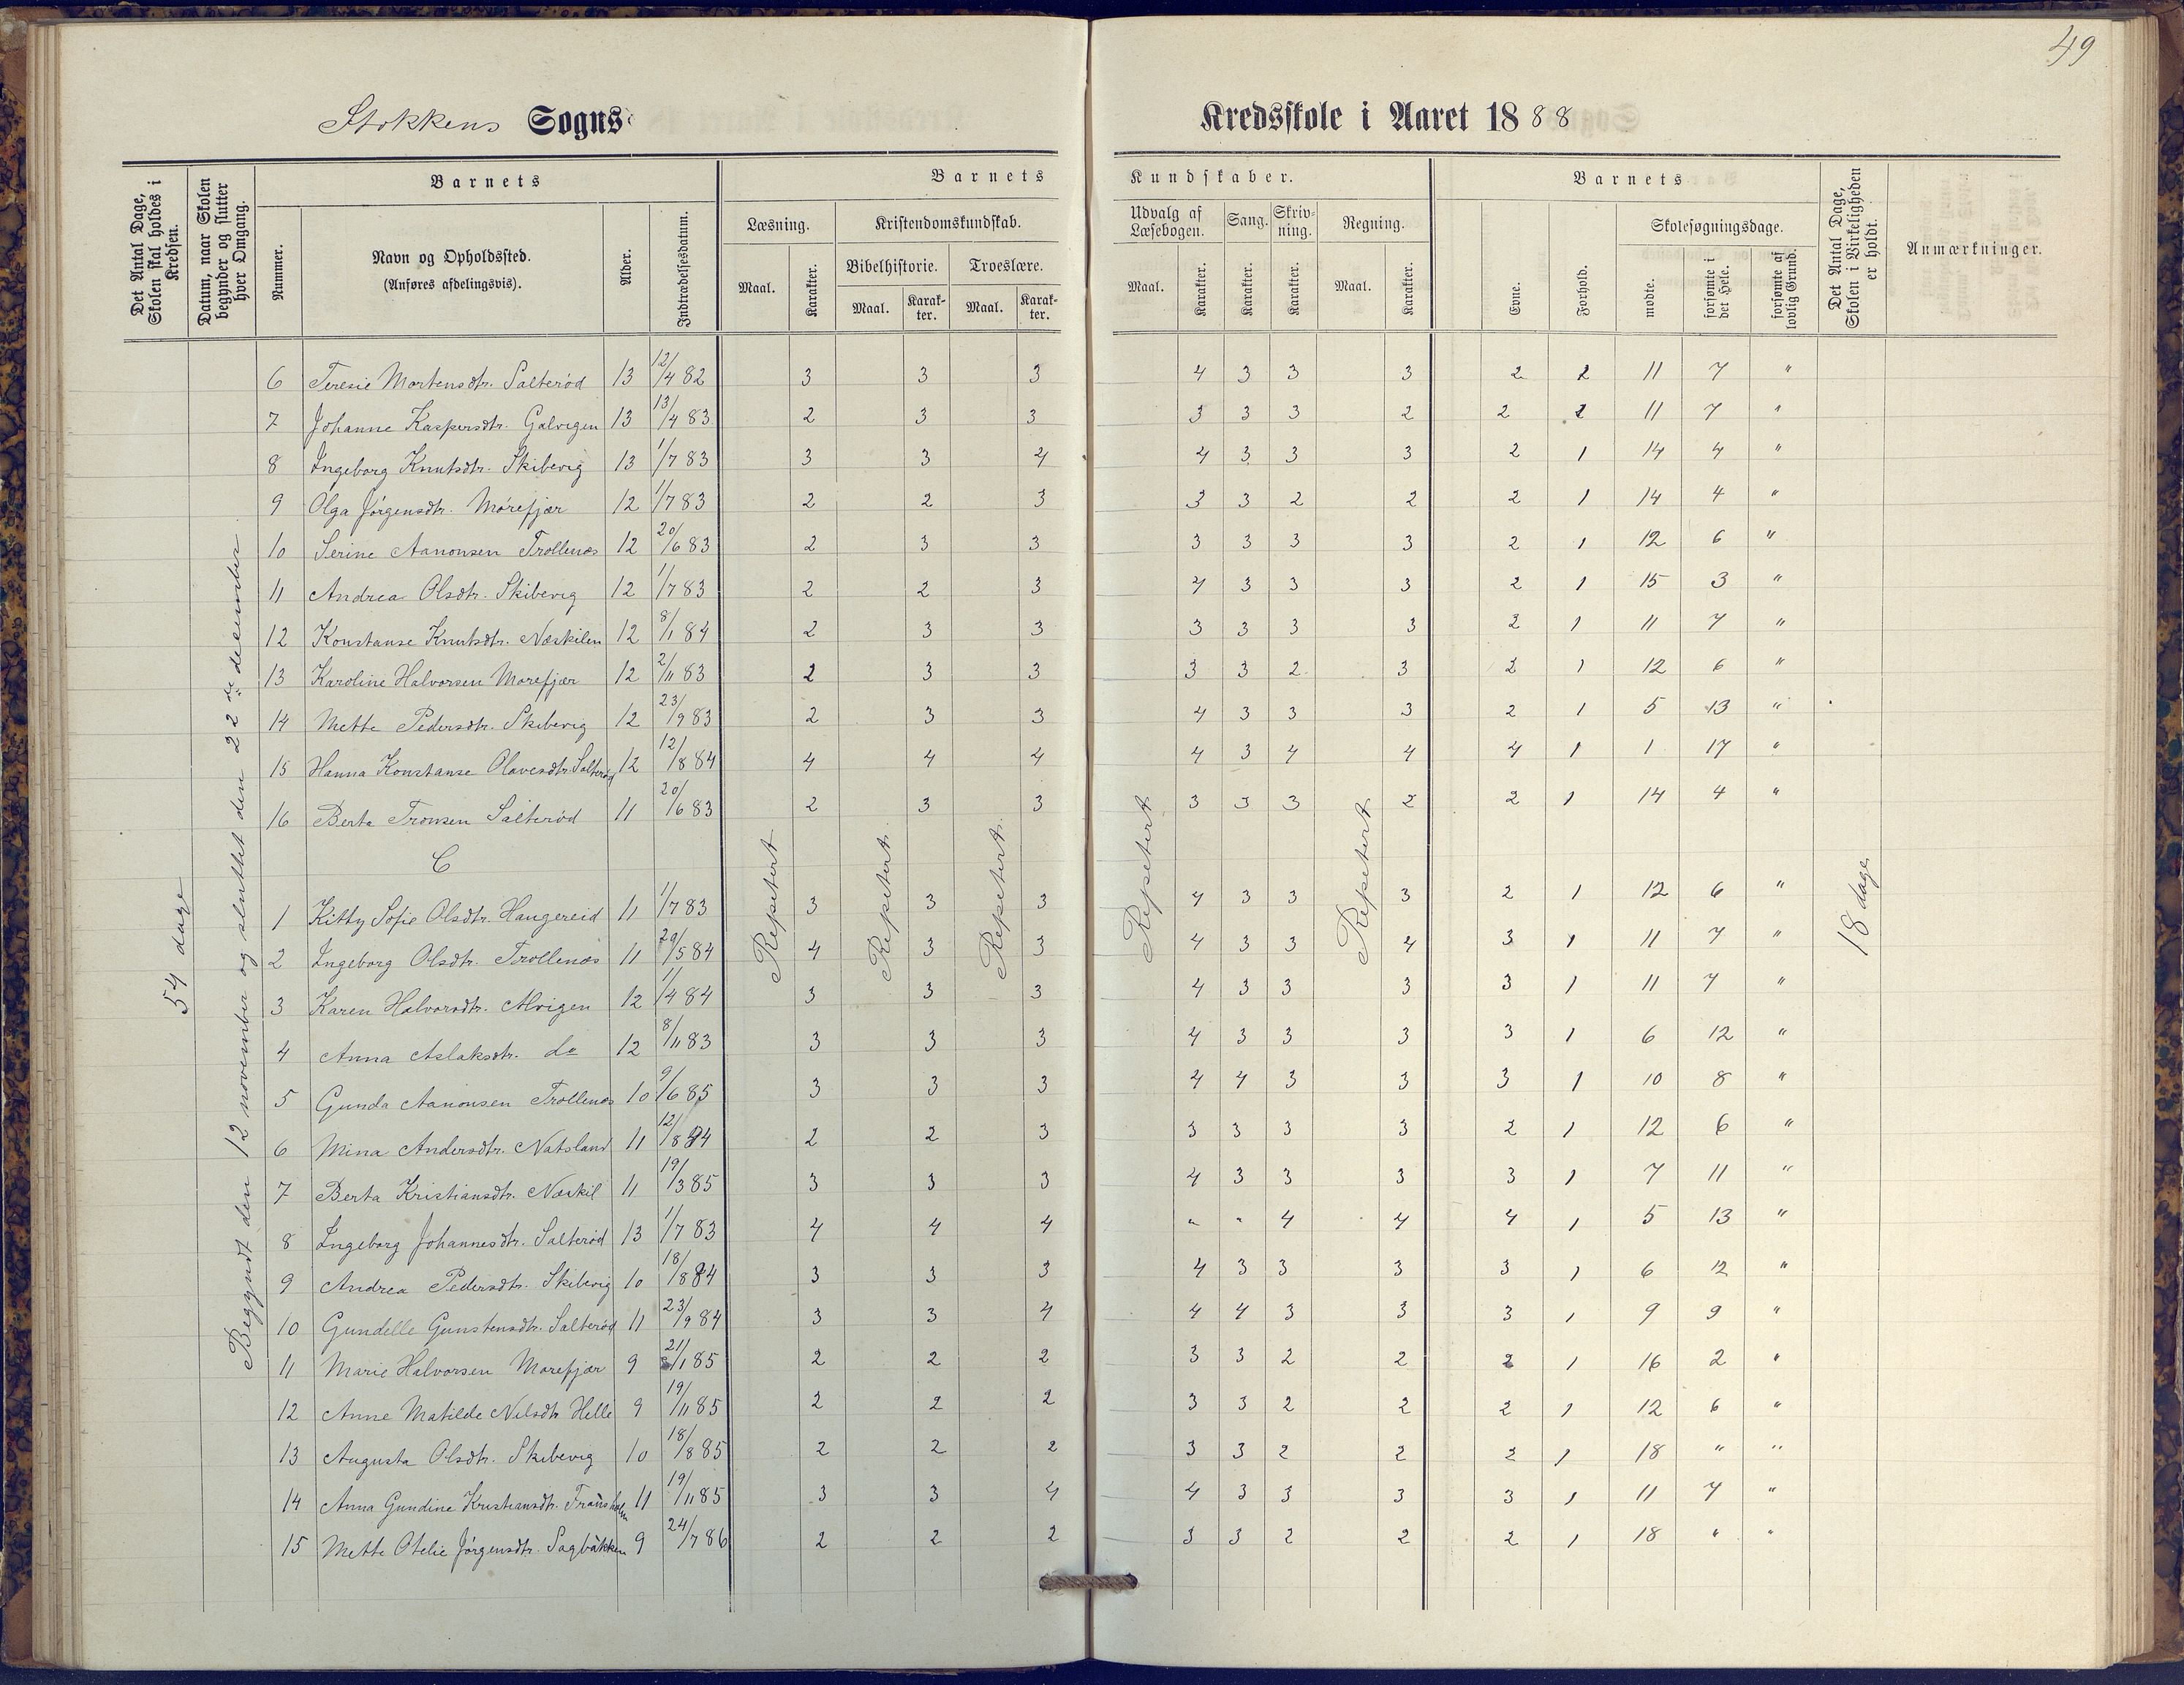 49
Stokkens Sogns Kredsskole i Aaret 1888
Det Antal Dage, Skolen skal holdes i Kredsen.
Datum, naar Skolen begynder og slutter hver Omgang.
Barnets
Nummer.
Navn og Opholdssted.
(Anføres afdelingsvis).
Alder.
Indtrædelsesdatum.
Barnets Kundskaber.
Læsning.
Maal. Karakter.
Kristendomskundskab.
Bibelhistorie. Troeslære.
Maal. Karakter. Maal. Karakter.
Udvalg af Læsebogen. Sang. Skrivning. Regning.
Maal. Karakter. Karakter. Karakter. Maal. Karakter.
Barnets
Evne. Forhold.
Skolesøgningsdage.
mødte. forsømte i det Hele. forsømte af lovlig Grund.
Det Antal Dage, Skolen i Virkeligheden er holdt.
Anmærkninger.
54 dage
Begyndt den 12 november og sluttet den 22de december
6 Teresie Mortensdtr. Salterød 13 12/4 82 3 3 3 4 3 3 3 2 2 11 7 "
7 Johanne Kaspersdtr. Galvigen 13 13/4 83 2 3 3 3 3 3 2 2 2 11 7 "
8 Ingeborg Knutsdtr. Skibevig 13 1/7 83 3 3 4 4 3 3 3 2 1 14 4 "
9 Olga Jörgensdtr. Mörefjær 12 1/7 83 2 2 3 3 3 2 2 2 1 14 4 "
10 Serine Aanonsen Trollenæs 12 20/6 83 2 3 3 3 3 3 3 2 1 12 6 "
11 Andrea Olsdtr. Skibevig 12 1/7 83 2 2 3 4 3 3 3 2 1 15 3 "
12 Konstanse Knutsdtr. Næskilen 12 8/1 84 2 3 3 3 3 3 3 2 1 11 7 "
13 Karoline Halvorsen Morefjær 12 2/11 83 2 3 3 3 3 2 3 2 1 12 6 "
14 Mette Pedersdtr. Skibevig 12 23/9 83 2 3 3 4 3 3 3 2 1 5 13 "
15 Hanna Konstanse Olavesdtr. Salterød 12 12/8 84 4 4 4 4 3 4 4 4 1 1 17 "
16 Berta Tronsen Salterød 11 20/6 83 2 3 3 3 3 3 2 2 1 14 4 "
C
Repetert Repetert Repetert Repetert Repetert
18 dage
1 Kitty Sofie Olsdtr. Haugereid 11 1/7 83 3 3 3 4 3 3 3 2 1 12 6 "
2 Ingeborg Olsdtr. Trollenæs 11 29/5 84 4 3 3 4 3 3 4 3 1 11 7 "
3 Karen Halvorsdtr. Alvigen 12 1/4 84 3 3 3 4 3 3 3 3 1 11 7 "
4 Anna Aslaksdtr. do 12 8/11 83 3 3 3 4 3 3 3 3 1 6 12 "
5 Gunda Aanonsen Trollenæs 10 9/6 85 3 3 3 4 4 3 3 3 1 10 8 "
6 Mina Andersdtr. Natsland 11 12/8 84 2 2 3 3 3 3 3 2 1 12 6 "
7 Berta Kristiansdtr. Næskil 11 19/3 85 3 3 3 4 3 3 3 3 1 7 11 "
8 Ingeborg Johannesdtr. Salterød 13 1/7 83 4 4 4 " " 4 4 4 1 5 13 "
9 Andrea Pedersdtr. Skibevig 10 18/8 84 3 3 3 4 3 3 3 3 1 6 12 "
10 Gundelle Gunstensdtr. Salterød 11 23/9 84 3 3 4 4 4 3 3 3 1 9 9 "
11 Marie Halvorsen Morefjær 9 21/1 85 2 2 2 3 3 2 2 2 1 16 2 "
12 Anne Matilde Nilsdtr Helle 9 19/11 85 2 2 2 3 3 2 2 2 1 12 6 "
13 Augusta Olsdtr. Skibevig 10 18/8 85 2 2 2 3 3 2 2 2 1 18 " "
14 Anna Gundine Kristiansdtr. 11 19/11 85 3 3 4 4 3 3 3 3 1 11 7 "
15 Mette Otelie Jörgensdtr. Sagbakken 9 24/7 86 2 2 2 3 3 2 2 2 1 18 " "